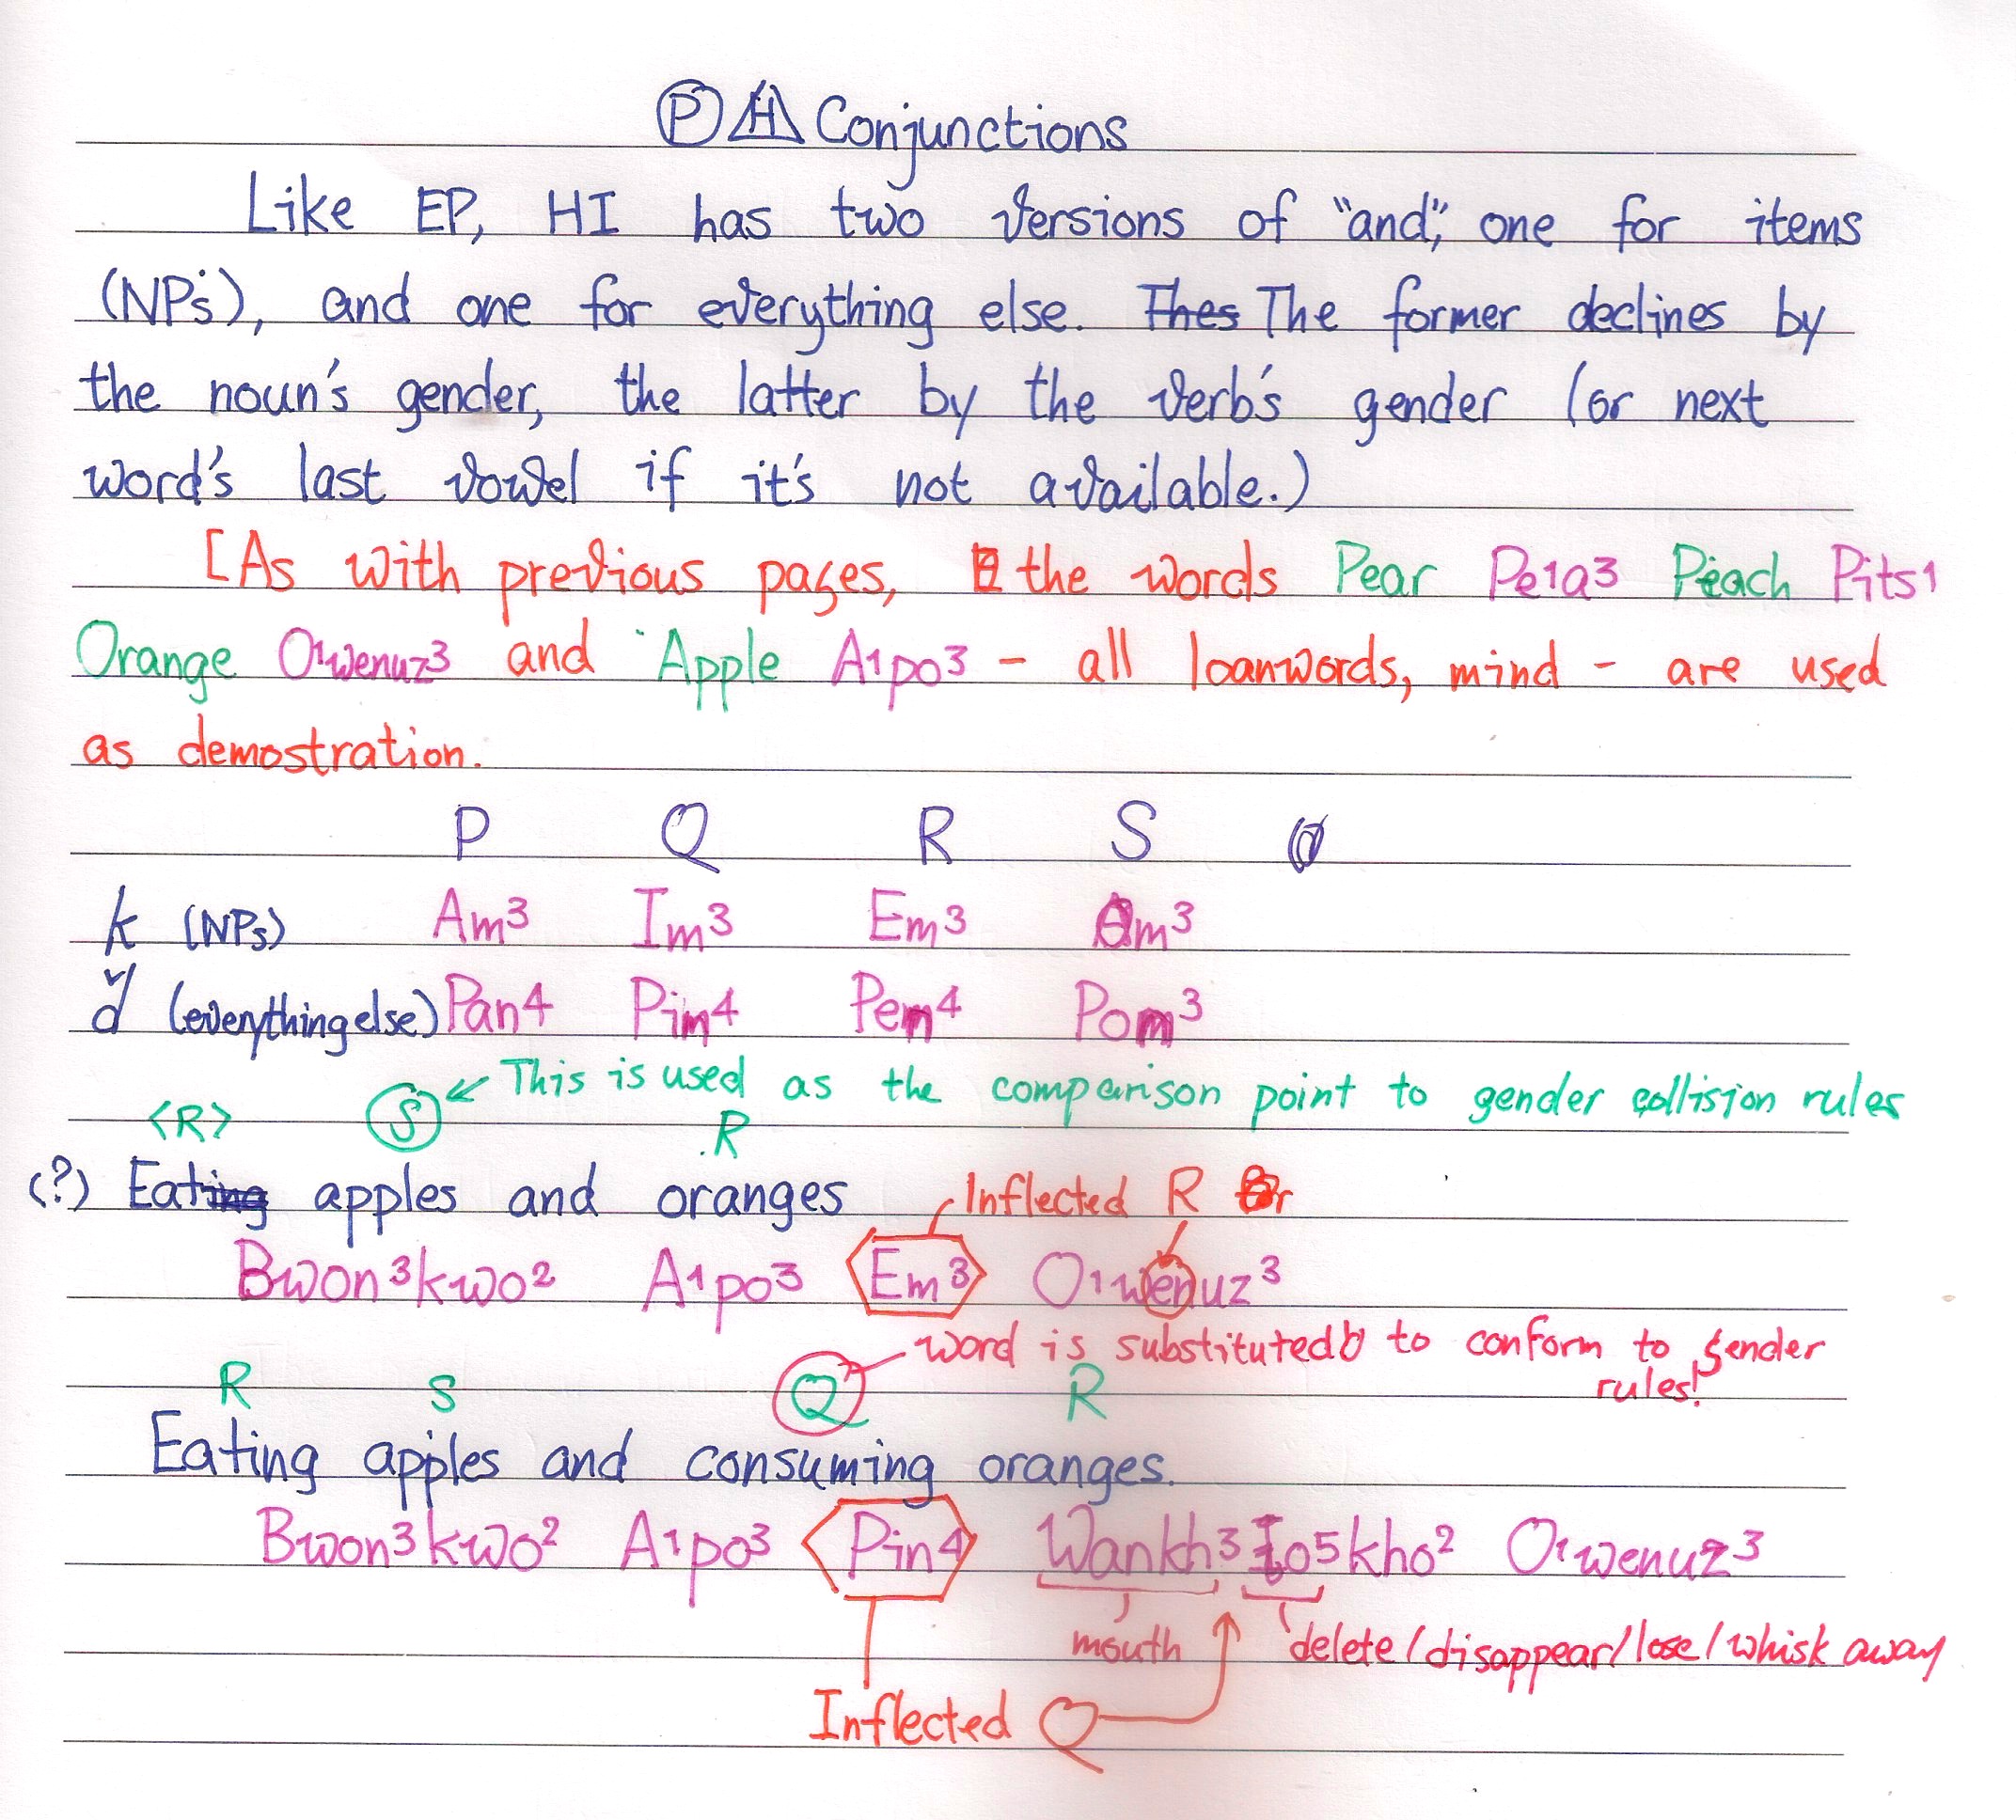 Ⓟ H Conjunctions
Like EP, HI has two versions of "and", one for items
(NPs), and one for everything else. Thes The former declines by
the noun's gender, the latter by the verb's gender (or next
word's last vowel if it's not available.)
[As with previous pages, the words Pear Pe1a3 Peach Pits1
Orange O1wenuz3 and Apple A1po3 - all loanwords, mind - are used
as demostration.
P Q R S
k (NPs) Am3 Im3 Em3 Om3
(everything else) Pan4 Pin4 Pen4 Pom3
<R> Ⓢ ← This is used as the comparison point to gender collision rules
R
(?) Eating apples and oranges Inflected R
Bwon3kwo2 A1po3 Em3 O1wenuz3
word is substituted to conform to gender
rules!
R S Q R
Eating apples and consuming oranges.
Bwon3kwo2 A1po3 Pin4 Wankh3 o5kho2 O1wenuz3
mouth delete/disappear/lose/whisk away
Inflected Q